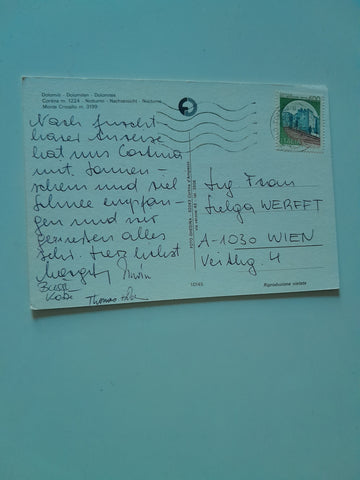 Dolomiti - Dolomiten - Dolomites
Cortina m. 1224 - Notturno - Nachtansicht - Nocturne
Monte Cristallo m. 3199
Nach furcht-
barer Anreise
hat uns Cortina
mit Sonnen-
schein und viel
Schnee empfan-
gen und wir
genießen alles
sehr. Herzlichst
Margit
Thomas
Frau
Helga WERFFT
A-1030 WIEN
Veithg. 4
10145
Riproduzione vietata